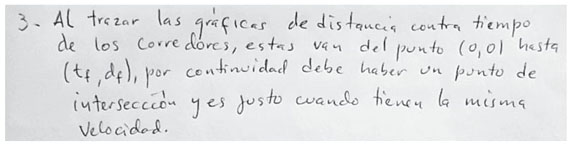 3. Al trazar las gráficas de distancia contra tiempo
de los corredores, estas van del punto (0,0) hasta
(tf, df), por continuidad debe haber un punto de
intersección y es justo cuando tienen la misma
velocidad.